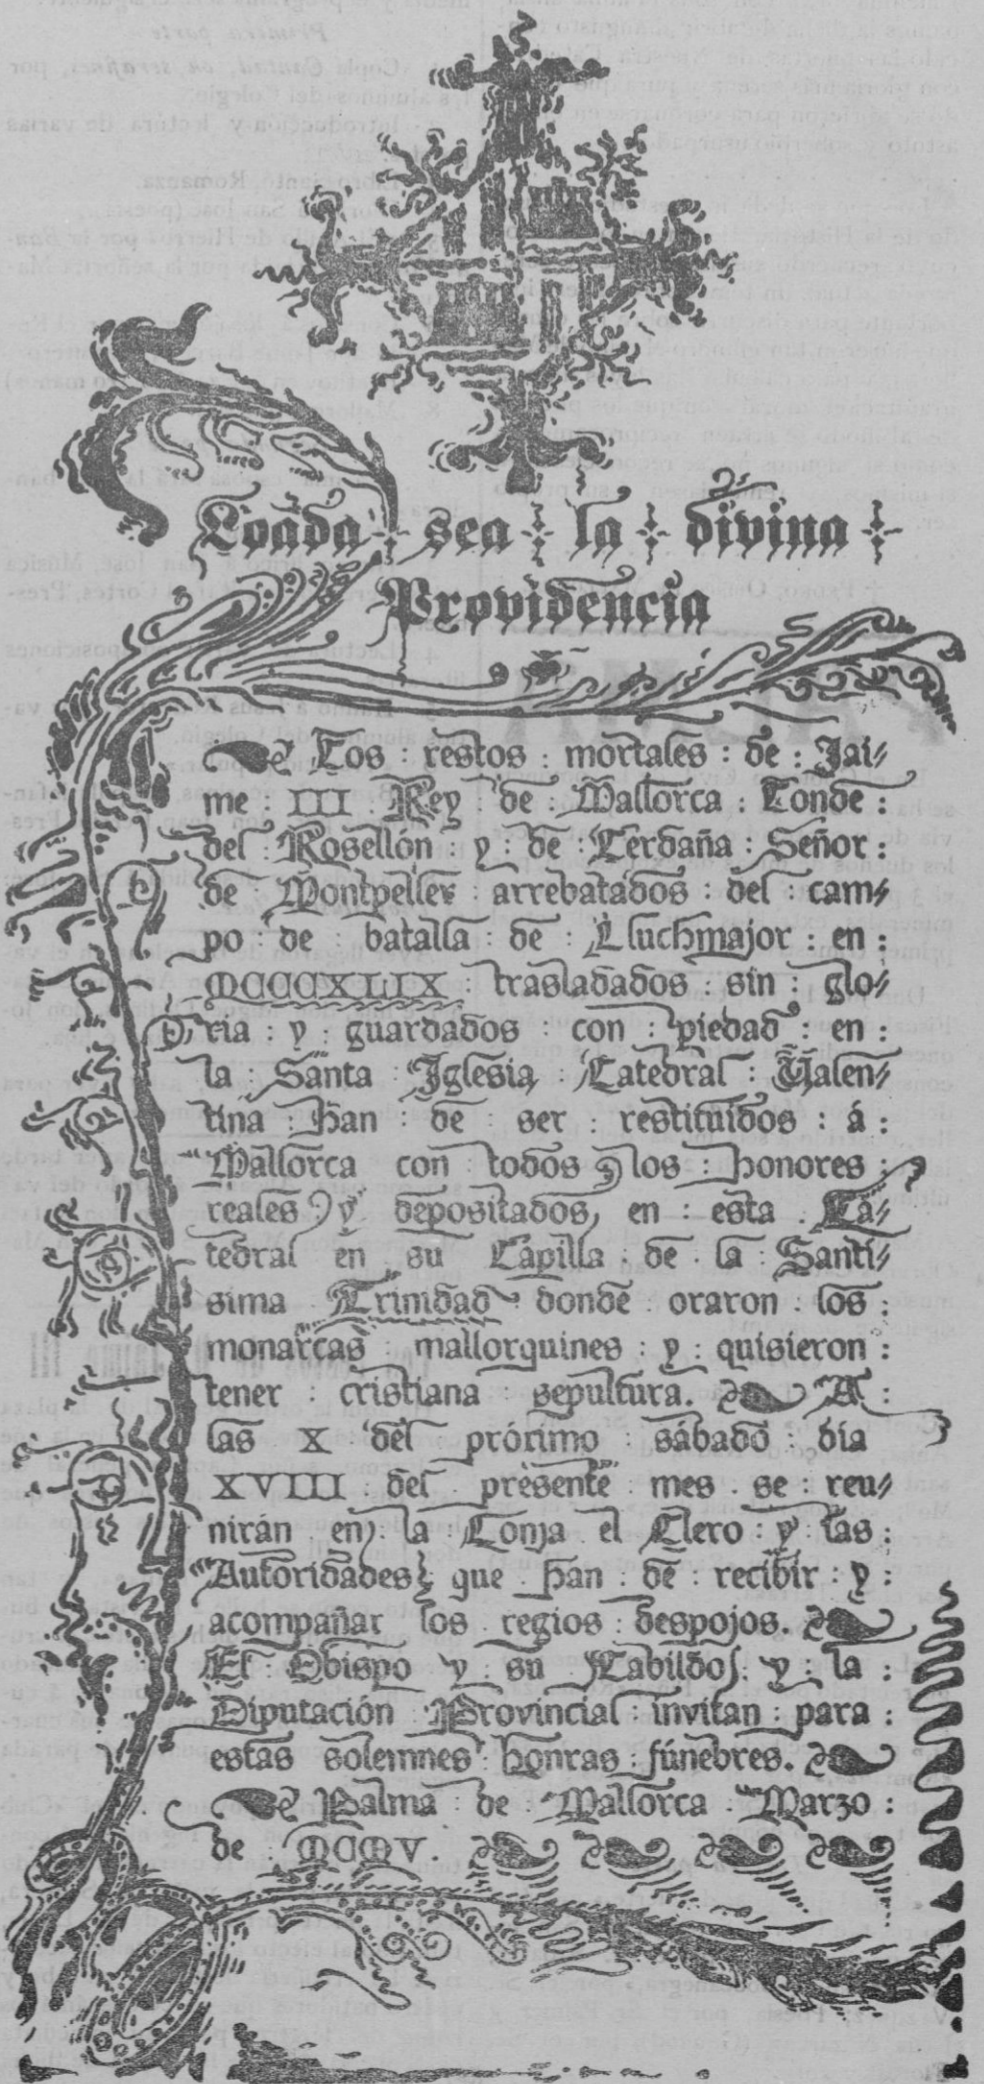 Loada sea la divina
Providencia
Los : restos : mortales : de : Jai-
me : III : Rey : de : Mallorca : Conde :
del : Rosellón : y : de : Cerdaña : Señor :
de : Montpeller : arrebatados : del : cam-
po : de : batalla : de : Lluchmajor : en :
MCCCXLIX : trasladados : sin : glo-
ria : y : guardados : con : piedad : en :
la : Santa : Iglesia : Catedral : Valen-
tina : han : de : ser : restituídos : á :
Mallorca con todos los : honores :
reales y depositados, en : esta : Ca-
tedral en su Capilla de la Santí-
sima Trinidad donde oraron : los :
monarcas mallorquines : y : quisieron :
tener : cristiana : sepultura. A :
las X del próximo sábado día
XVIII del presente mes se : reu-
nirán en la Lonja el Clero : y : las :
Autoridades que han de recibir : y :
acompañar los regios despojos.
El Obispo y su Cabildo y : la :
Diputación Provincial : invitan : para :
estas solemnes honras fúnebres.
Palma de Mallorca Marzo :
de MCMV.